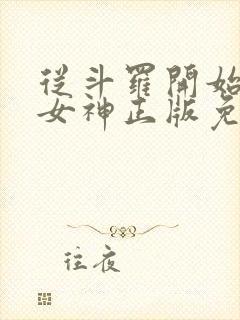 從斗羅開始
女神正版免
往夜